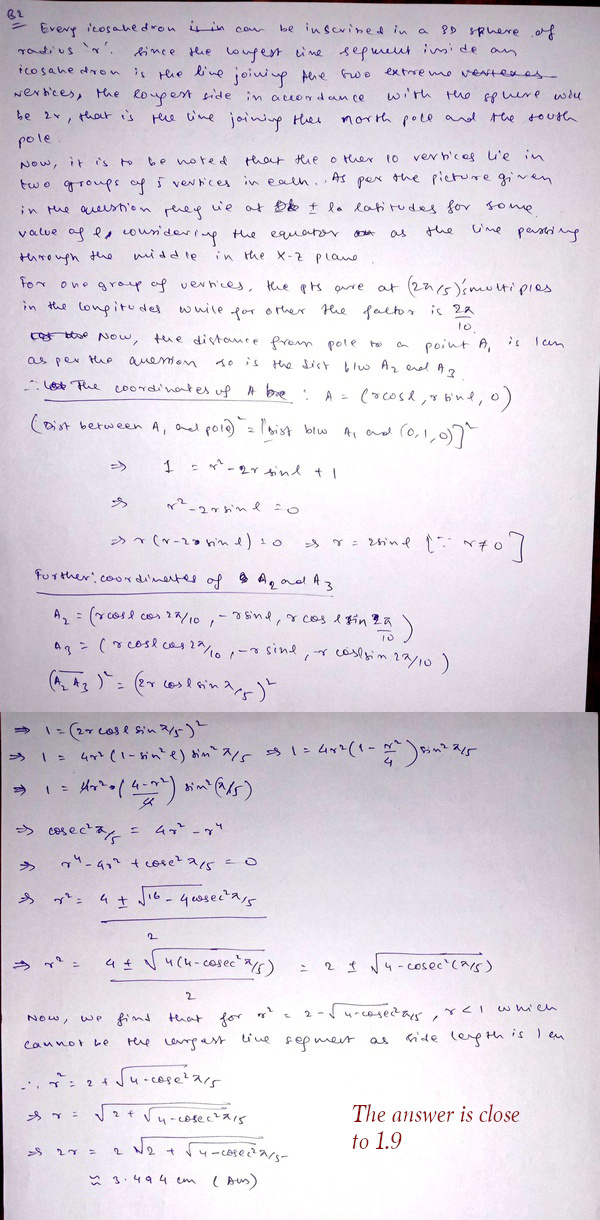 B2
Every icosahedron is in can be inscribed in a 3D sphere of
radius 'r'. Since the longest line segment inside an
icosahedron is the line joining the two extreme vertexes
vertices, the longest side in accordance with the sphere will
be 2r, that is the line joining the north pole and the south
pole.
Now, it is to be noted that the other 10 vertices lie in
two groups of 5 vertices in each. As per the picture given
in the question they lie at ± l° latitudes for some
value of l, considering the equator as the line passing
through the middle in the x-z plane.
For one group of vertices, the pts are at (2π/5)'s multiples
in the longitudes while for other the factor is 2π/10.
Now, the distance from pole to a point A₁ is 1cm
as per the question so is the dist b/w A₂ and A₃.
∴ The coordinates of A be : A = (r cos l, r sin l, 0)
(Dist between A₁ and pole)² = [Dist b/w A₁ and (0,1,0)]²
⇒ 1 = r² - 2r sin l + 1
⇒ r² - 2r sin l = 0
⇒ r(r - 2 sin l) = 0 ⇒ r = 2 sin l [∵ r ≠ 0]
Further: coordinates of A₂ and A₃
A₂ = (r cos l cos 2π/10, - r sin l, r cos l sin 2π/10)
A₃ = (r cos l cos 2π/10, - r sin l, - r cos l sin 2π/10)
(A₂A₃)² = (2r cos l sin π/5)²
⇒ 1 = (2r cos l sin π/5)²
⇒ 1 = 4r² (1 - sin² l) sin² π/5 ⇒ 1 = 4r² (1 - r²/4) sin² π/5
⇒ 1 = 4r² • (4 - r²/4) sin² (π/5)
⇒ cosec² π/5 = 4r² - r⁴
⇒ r⁴ - 4r² + cosec² π/5 = 0
⇒ r² = 4 ± √16 - 4cosec² π/5 / 2
⇒ r² = 4 ± √4(4 - cosec² π/5) / 2 = 2 ± √4 - cosec² (π/5)
Now, we find that for r² = 2 - √4 - cosec² π/5, r < 1 which
cannot be the largest line segment as side length is 1 cm
∴ r² = 2 + √4 - cosec² π/5
⇒ r = √2 + √4 - cosec² π/5
⇒ 2r = 2 √2 + √4 - cosec² π/5
≈ 3.494 cm (Ans)
The answer is close
to 1.9